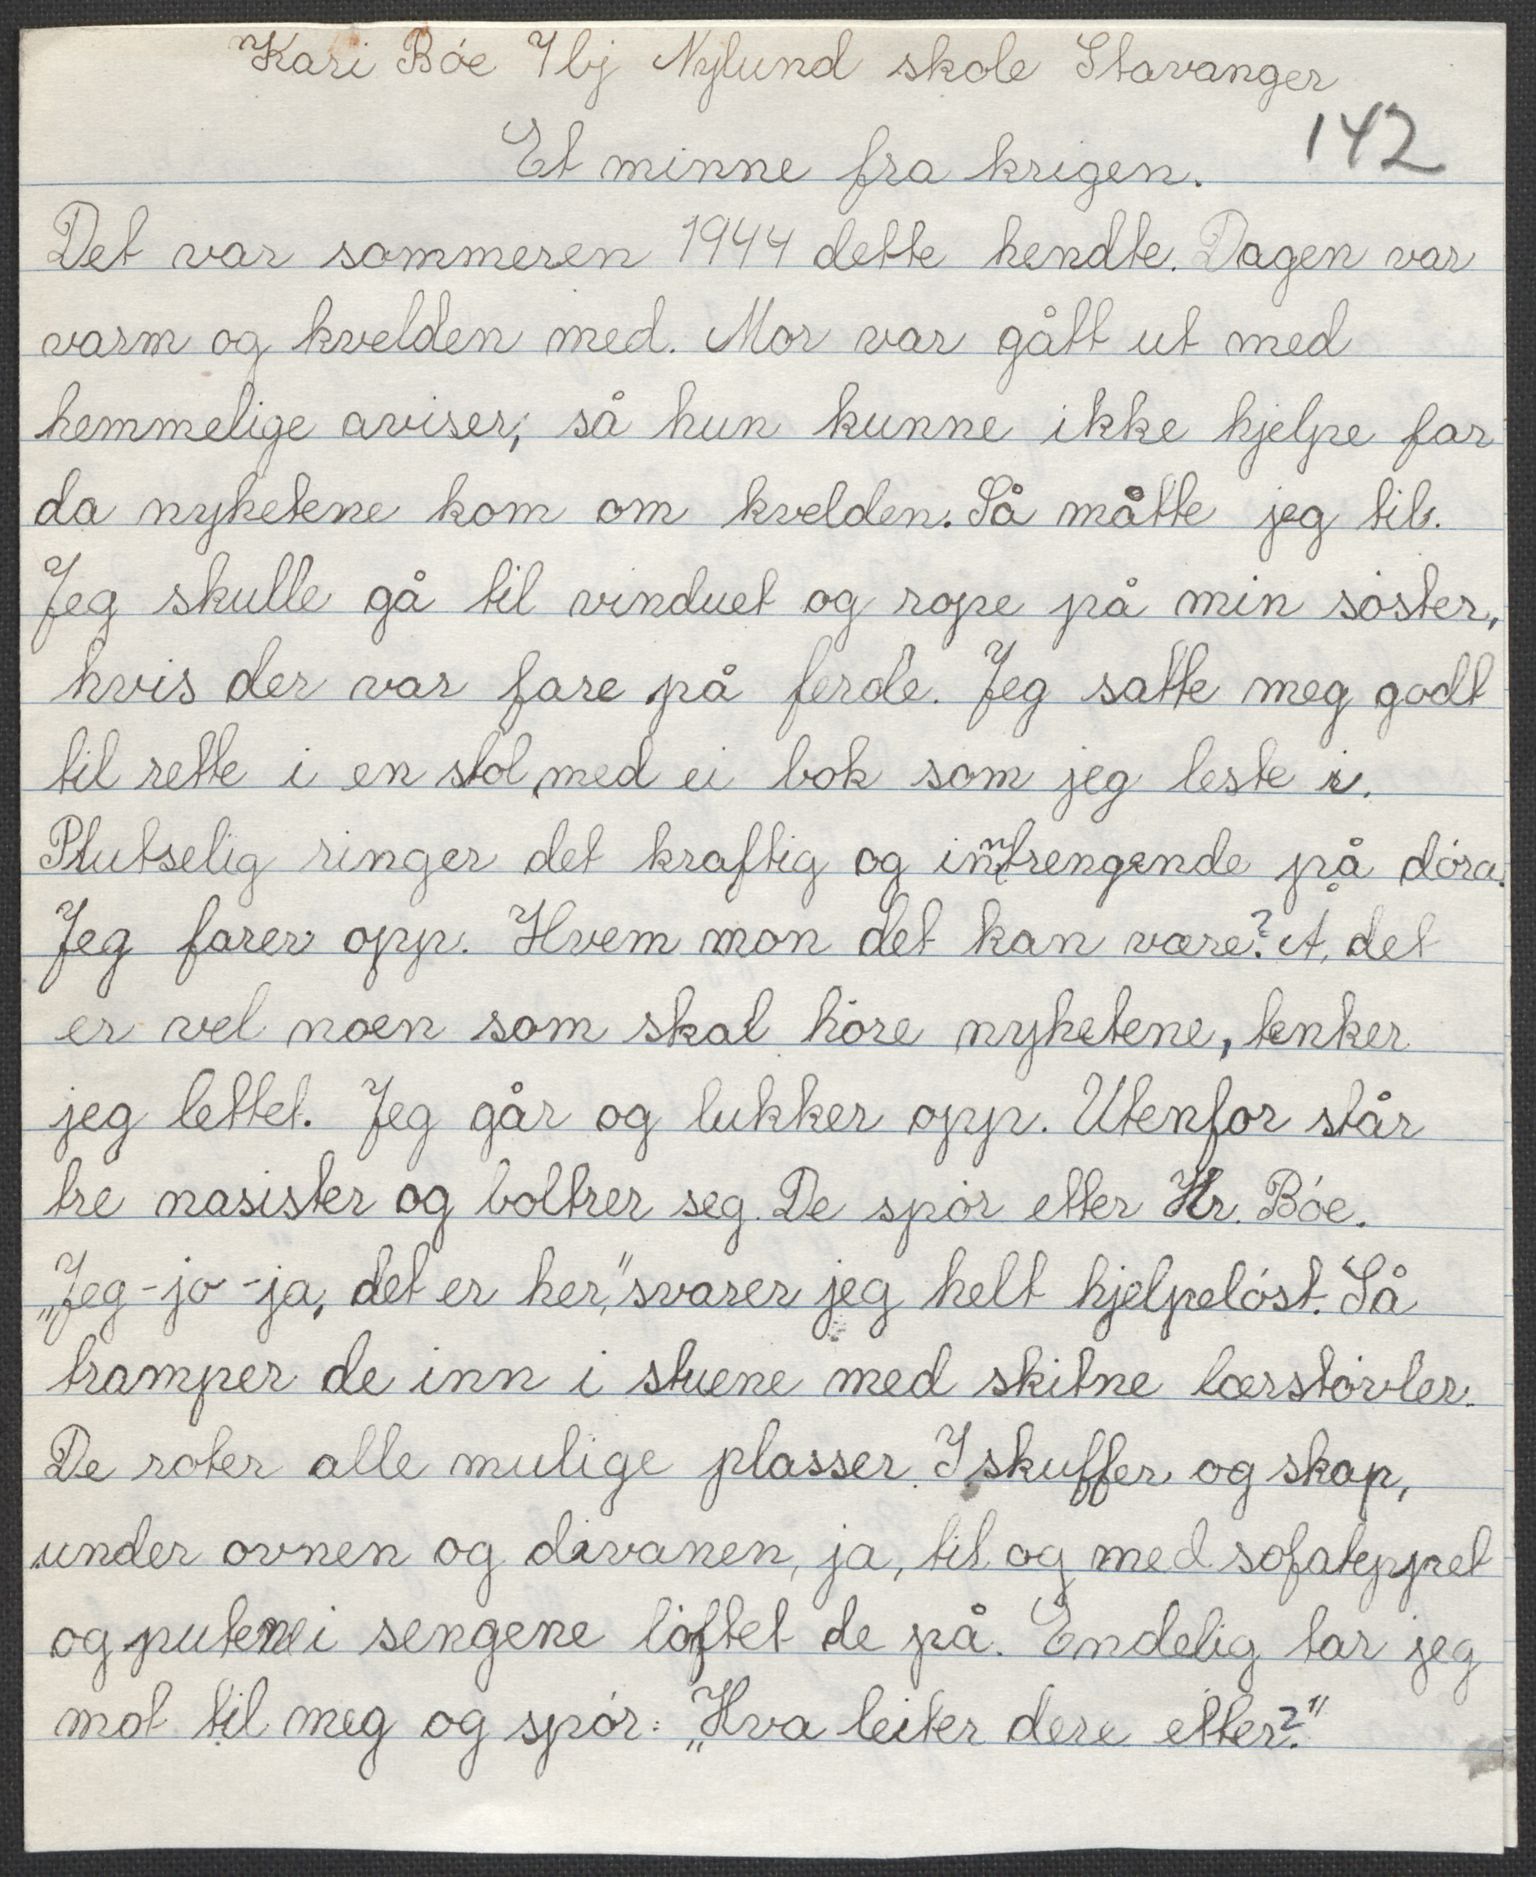 Kari Bóe 7bj Nylund skole Stavanger
142
Et minne fra krigen.
Det var sommeren 1944 dette hendte. Dagen var
varm og kvelden med. Mor var gått ut med
hemmelige aviser, så hun kunne ikke hjelpe far
da nyhetene kom om kvelden. Så måtte jeg til.
Jeg skulle gå til vinduet og rope på min sóster,
hvis der var fare på ferde. Jeg satte meg godt
til rette i en stol med ei bok som jeg leste i.
Plutselig ringer det kraftig og inntrengende på dóra.
Jeg farer opp. Hvem mon det kan være? Å, det
er vel noen som skal hóre nyhetene, tenker
jeg lettet. Jeg går og lukker opp. Utenfor står
tre nasister og boltrer seg. De spór etter Hr. Bóe.
„Jeg-jo-ja, det er her," svarer jeg helt hjelpelóst. Så
tramper de inn i stuene med skitne lærstóvler.
De roter alle mulige plasser. I skuffer og skap,
under ovnen og divanen, ja, til og med sofateppet
og putene i sengene lóftet de på. Endelig tar jeg
mot til meg og spór: „Hva leiter dere etter?"